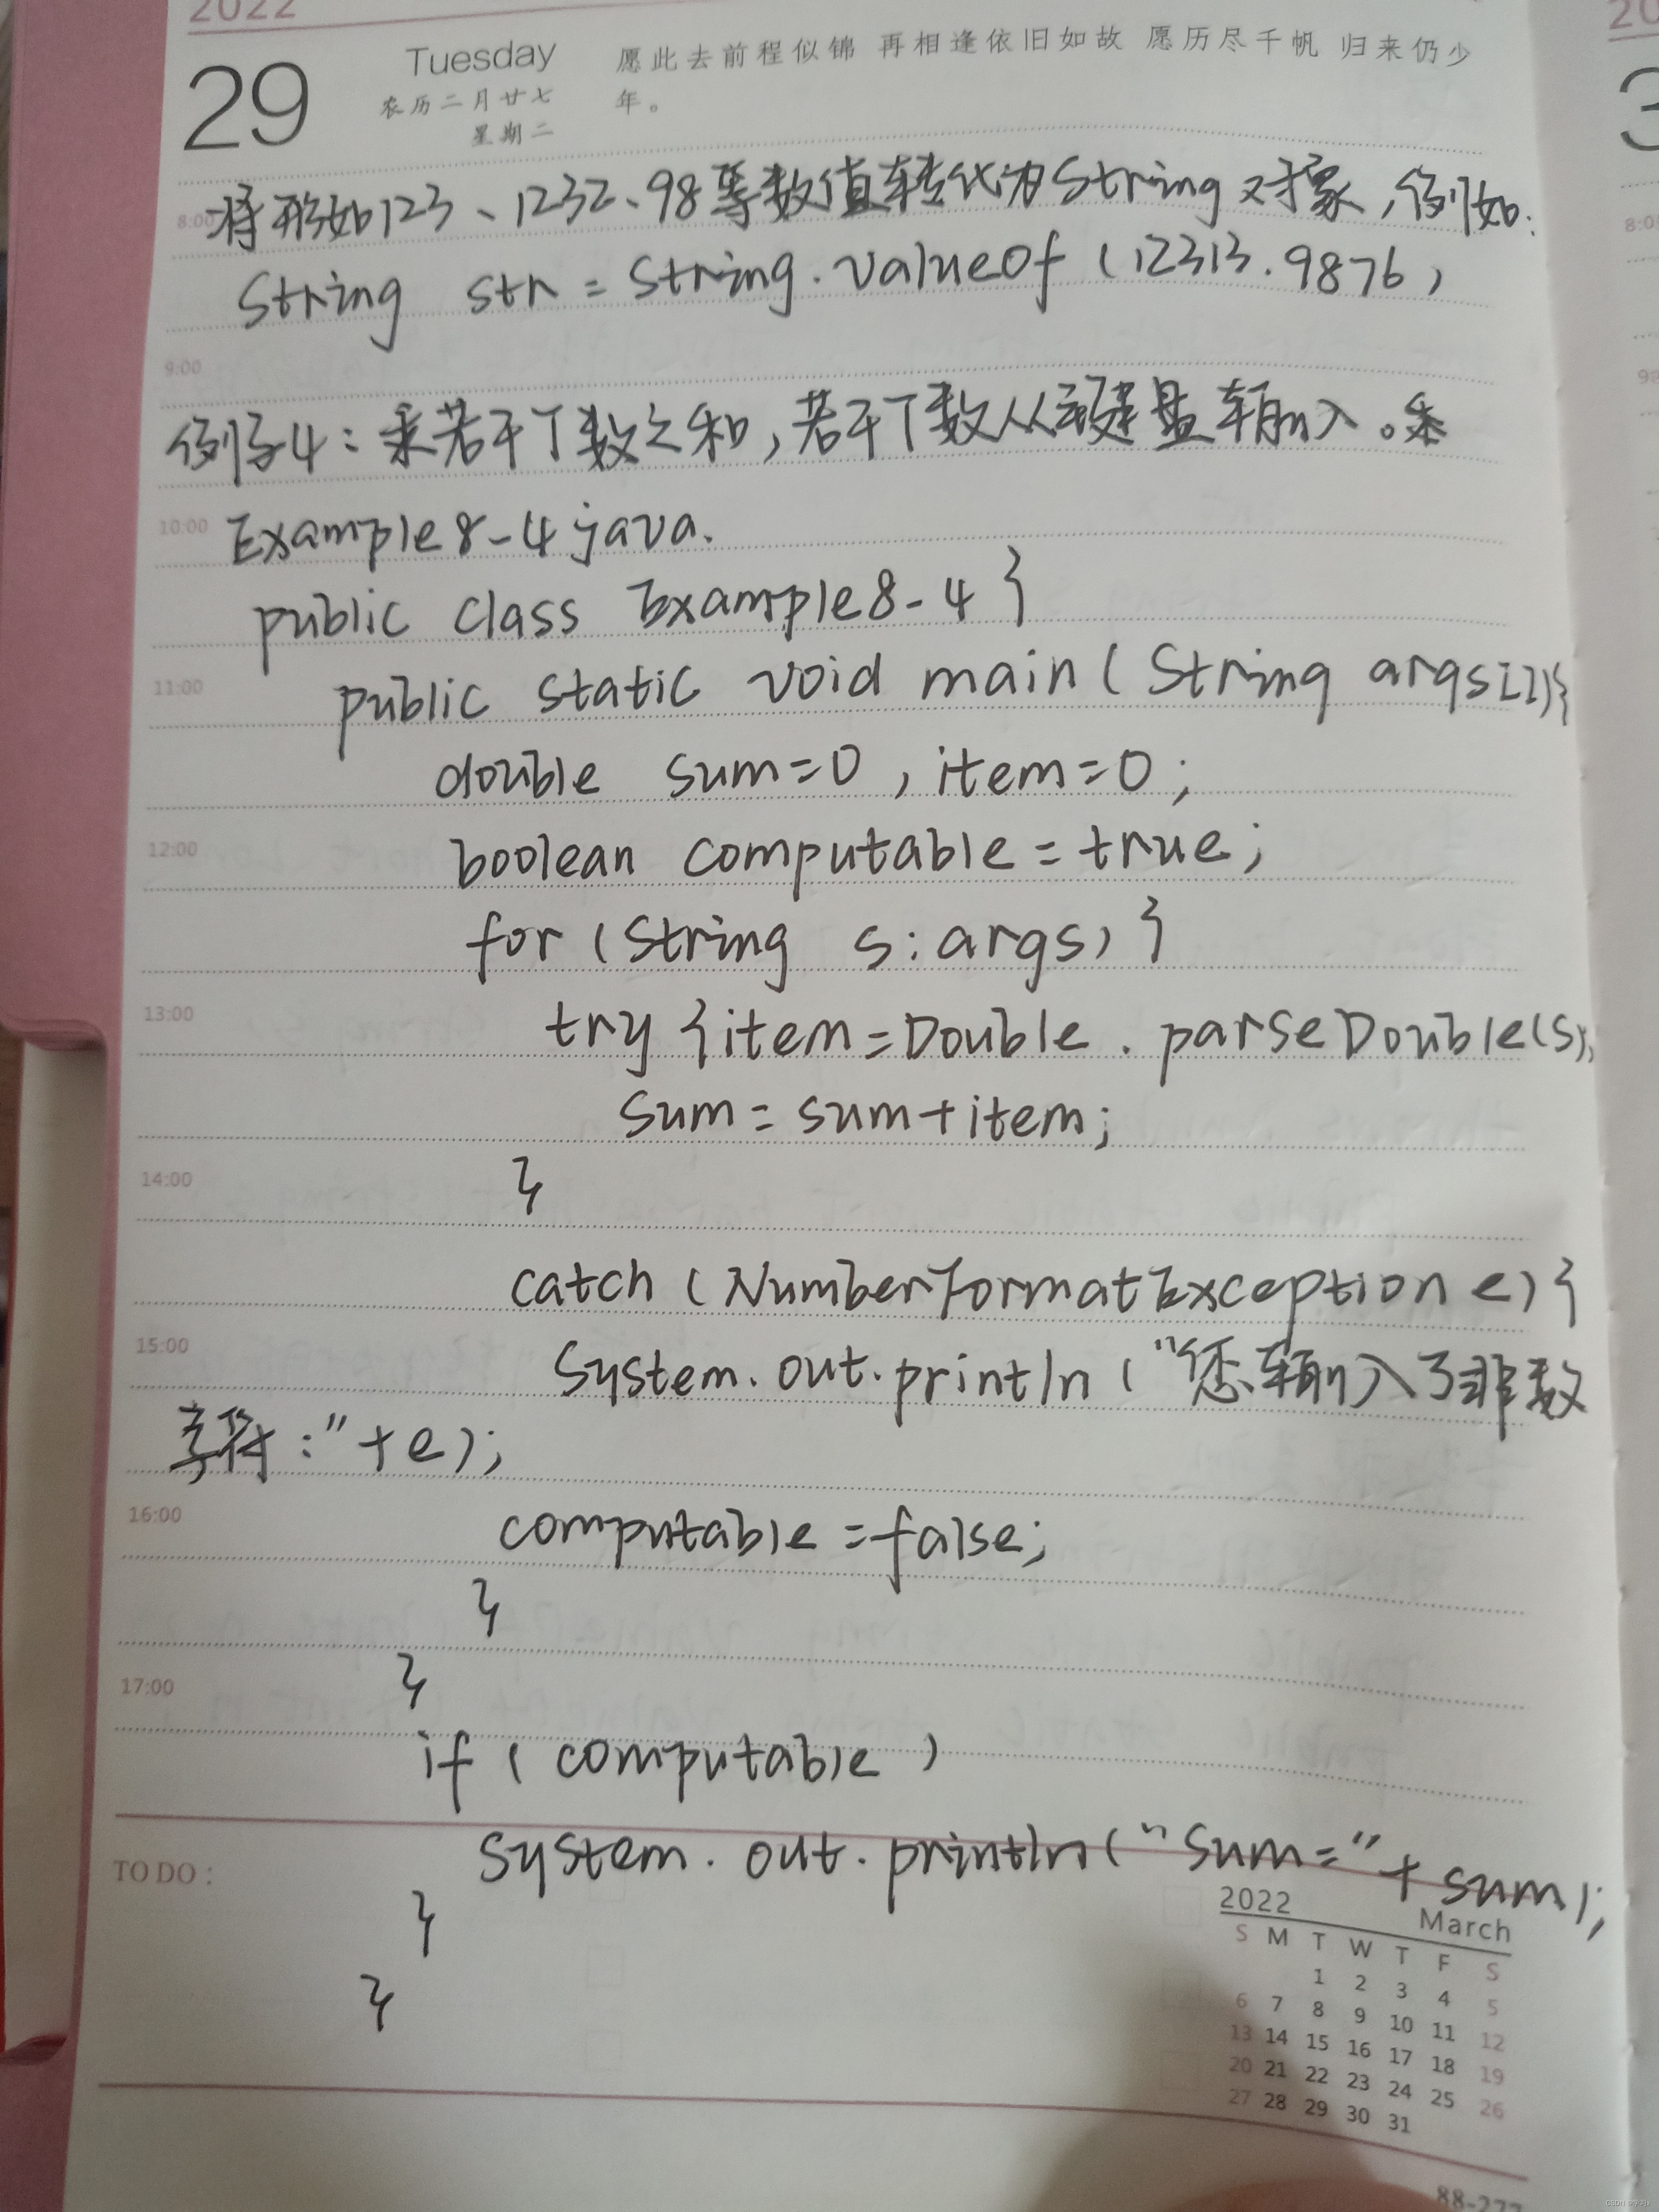 2022
29
Tuesday
农历二月廿七
星期二
愿此去前程似锦 再相逢依旧如故 愿历尽千帆 归来仍少
年。
8:00
将形如123、1232.98等数值转化为String对象,例如:
String str = String.valueOf (12313.9876)
9:00
例子4:求若干个数之和,若干个数从键盘输入。
10:00
Example8-4 java.
public class Example8-4 }
11:00
public static void main ( String args[]){
double sum=0 , item=0 ;
12:00
boolean computable = true;
for (String s: args) }
13:00
try {item=Double . parseDouble(s);
sum = sum+item;
14:00
}
catch (NumberFormatException e) {
15:00
System.out.println ("您输入了非数
字符:"+e);
16:00
computable =false;
}
}
17:00
if ( computable )
System. out. println ("sum="+ sum);
TO DO :
}
}
2022 March
S M T W T F S
1 2 3 4 5
6 7 8 9 10 11 12
13 14 15 16 17 18 19
20 21 22 23 24 25 26
27 28 29 30 31